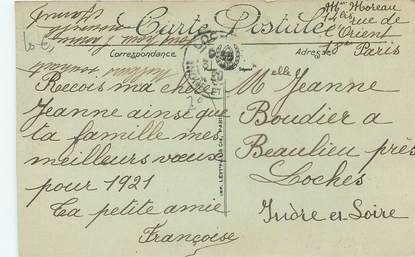 Carte Postale
Correspondance
Adresse
Mme Moreau
rue de
Orient
Paris
Recois ma chère
Jeanne ainsi que
ta famille mes
meilleurs vœux
pour 1921
Ta petite amie
Françoise
Melle Jeanne
Boudier a
Beaulieu près
Loches
Indre et-Loire